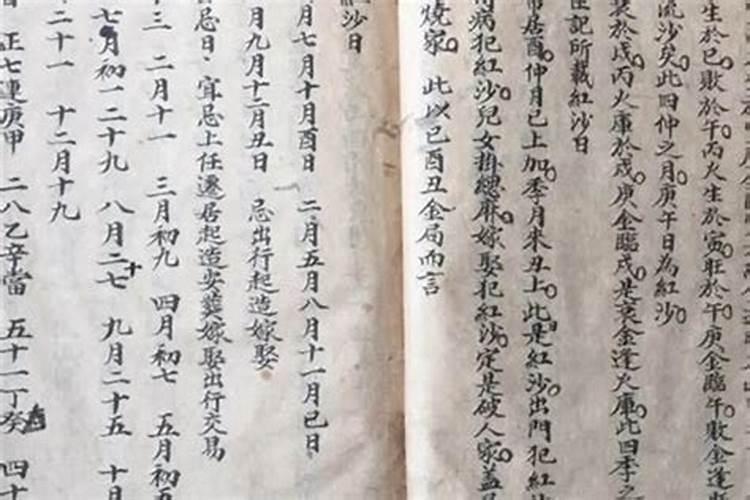 生於巳敗於午丙火生於寅旺於午庚金臨午敗金逢
流沙矣此四仲之月庚午日為紅沙
裝於戌丙火庫於戌庚金臨戌是衰金逢火庫此四季之
記所載紅沙日
居酉仲月巳上加季月未丑上此是紅沙出門犯紅
病犯紅沙兒女掛緦麻嫁娶犯紅沙定是破人家蓋
燒家 此以巳酉丑金局而言
紅沙日
月七月十月酉日 二月五月八月十一月巳日
月九月十二月丑日 忌出行起造嫁娶
忌日 宜忌上任遷居起造安葬嫁娶出行交易
十三 二月十一 三月初九 四月初七 五月初五
七月初一二十九 八月二十七 九月二十五 十月
二十一 十二月十九
正七連庚甲 二八乙辛當 五十一丁癸 四十